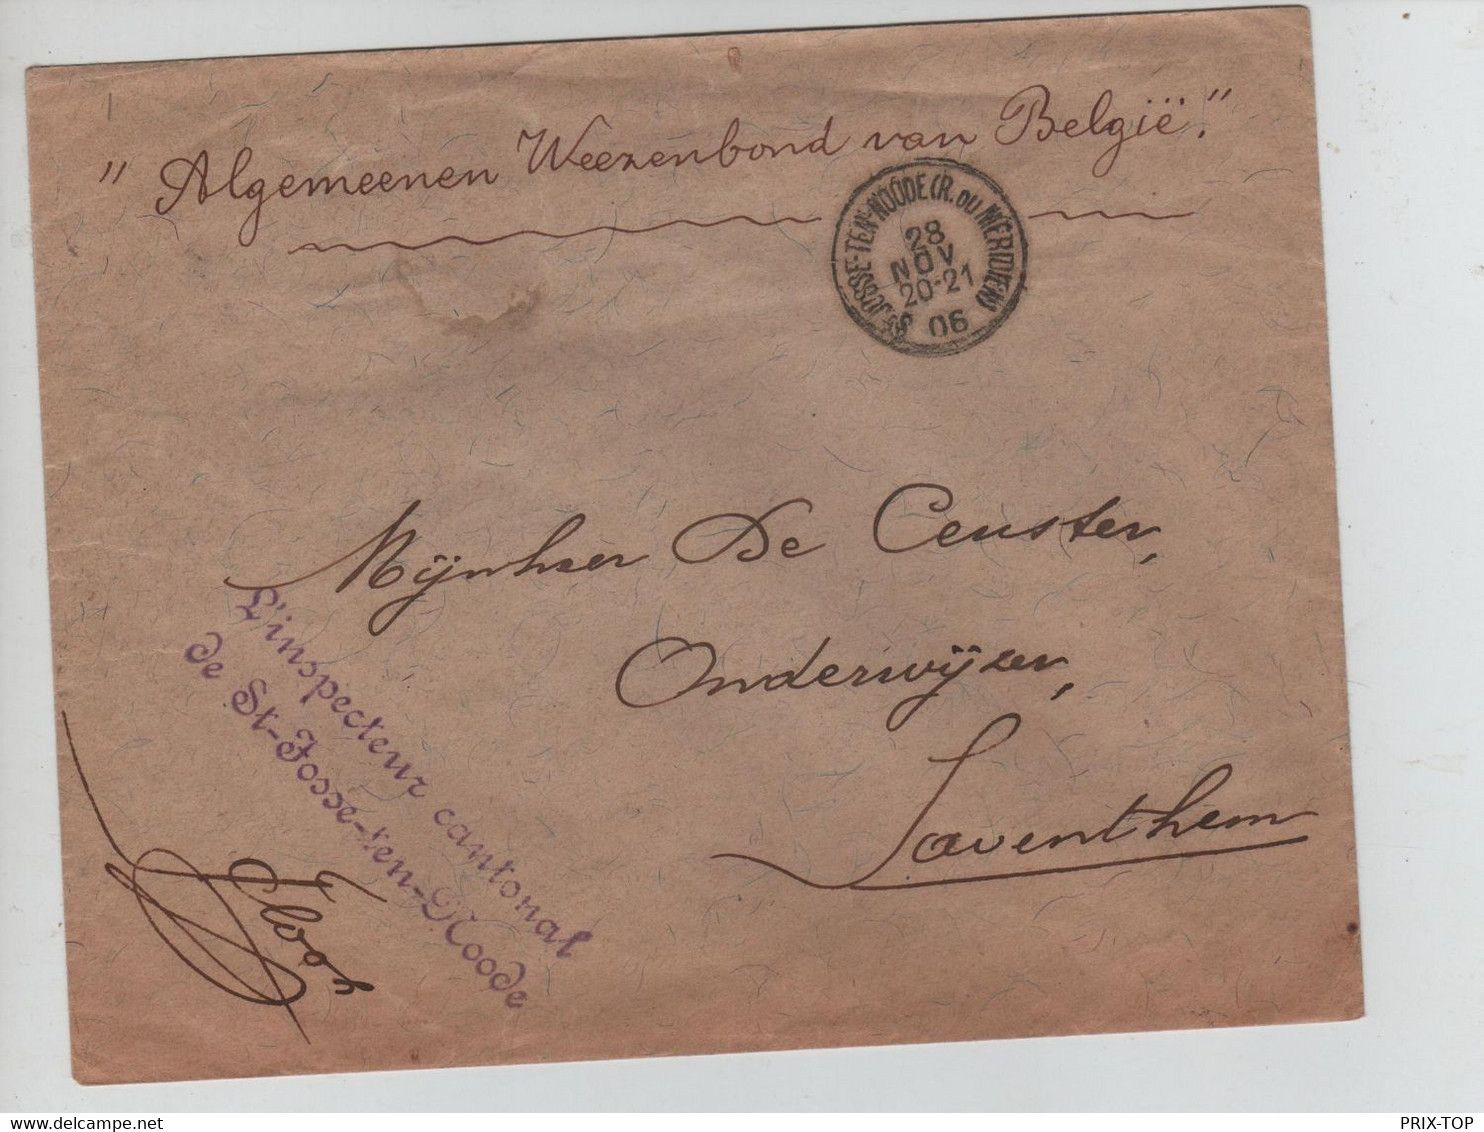 " Algemeenen Weezenbond van België."
St JOSSE-TEN-NOODE (R. DU MÉRIDIEN)
28
NOV
20-21
06
Mijnheer De Ceuster,
Onderwijzer,
Saventhem
L'inspecteur cantonal
de St-Josse-ten-Noode
PRIX-TOP